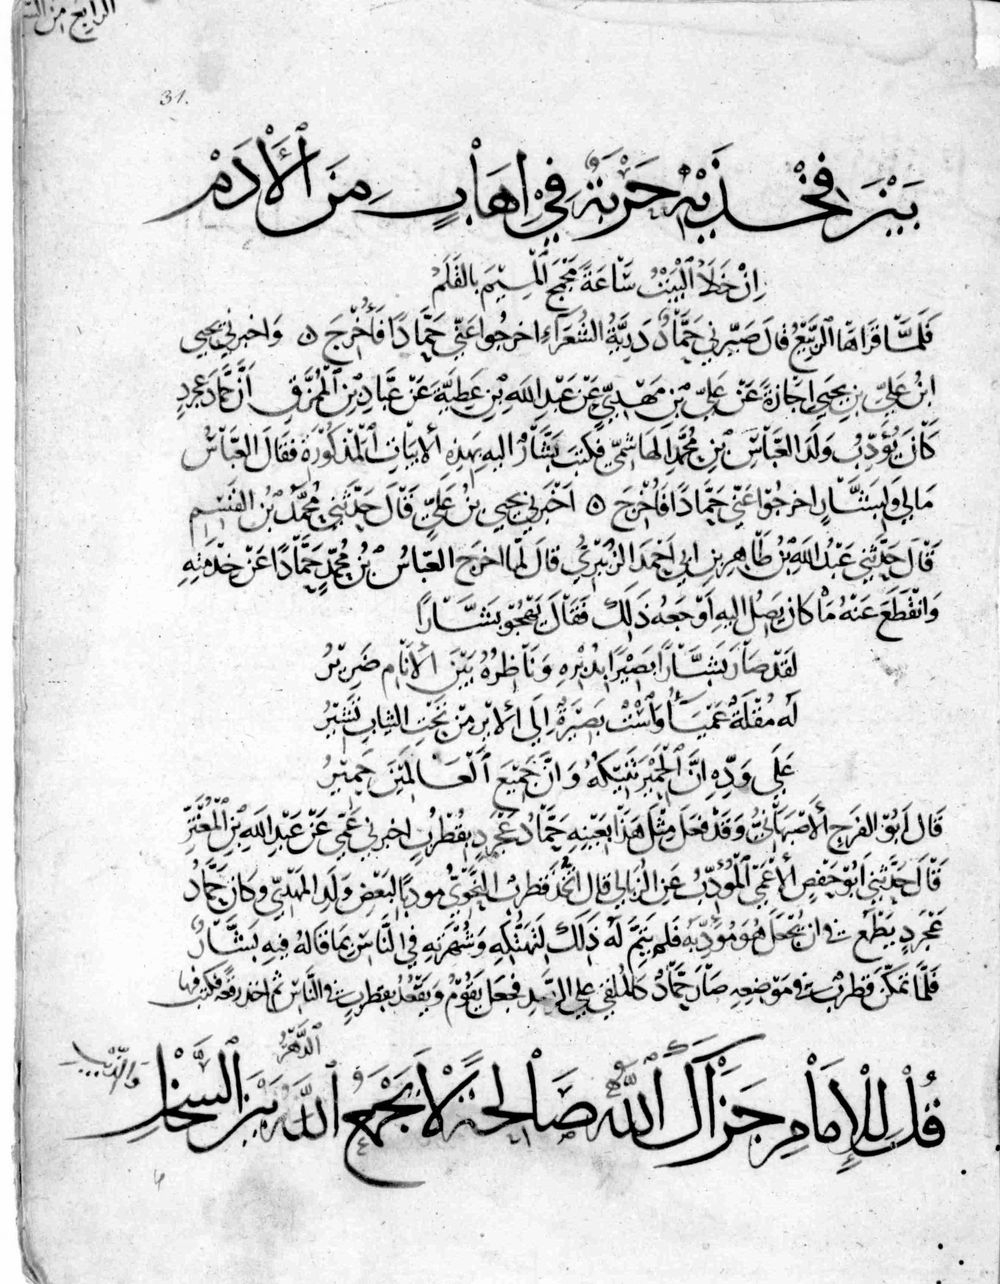 الرابع من
31.
بَيْنَ فَخْذَيْهِ حَرْبَةٌ فِيْ اِهَابٍ مِنَ ٱلْأَدَمْ
اِنْ خَلَا ٱلْبَيْتُ سَاعَةً مَجْمَجَ ٱلْمِيْمَ بالقَلَمْ
فَلمَّا قَرَاهَا الرَّبيْعُ قالَ صَيّرني حَمَّادٌ دَريَّةَ الشُعَرَآءِ اخرجُوا عَنّي حَمَّادًا فَأُخْرِجَ ٥ وَاخبرني يحيى
ابْنُ عَليّ بن يحيى اجَازَةً عَنْ عَليّ بْن مَهْديٍّ عَنْ عَبْدِ اللهِ بْنِ عَطِيَّةَ عَنْ عَبَّادِ بْنِ ٱلْمُمَزَّقِ اَنَّ حَمَّاد عجردٍ
كَانَ يُؤَدّبُ وَلَدَ العَبَّاسِ بْنِ مُحمَّدٍ الهَاشميّ فكتبَ بَشَّارٌ اليهِ بهذهِ ألابيَاتِ ٱلْمذكُوْرَةِ فقَال العَبَّاسُ
مَالي وَلبَشَّارٍ اخرجُوْا عَنّي حَمَّادًا فَأُخْرِجَ ٥ اخَبَرَني يحيى بْنُ عَليٍّ قَالَ حَدَّثَني مُحمَّدُ بْنُ القسِم
قَالَ حَدَّثَني عَبْدُ اللهِ بْنُ طَاهِر بن ابي احْمَدَ الزُبَيْريُّ قال لمّا اخرَجَ العبّاسُ بْنُ مُحمّدٍ حَمَّادًا عَنْ خدْمَتِهِ
وَانْقَطَعَ عَنْهُ مَا كانَ يَصِلُ اليهِ اَوْجَعَهُ ذَلِكَ فَقَالَ يَهْجُوْ بَشَّارًا
لقَدْ صَارَ بَشَّارًا بصَيْرًا بدُبْرهِ وَنَاظرُهُ بَيْنَ ألأنَام ضَرِيْرُ
لَهُ مُقْلَةٌ عَمْيَآءُ وَٱسْتٌ بَصِيْرَةٌ اِلَى ألايْرِ مِنْ تَحْتِ الثيَابِ تُشيْرُ
عَلى وَدّهِ انَّ ٱلْحَميْرَ تَنيْكُهُ وَانَّ جَميْعَ ٱلْعَالَميْنَ حَميْرُ
قَالَ اَبُوْ الفَرَجِ ألاصْبهَانيُّ وَقدْ فعَلَ مِثْلَ هَذا بعَيْنِهِ حَمَّادُ عَجْردٍ بقُطْرُبٍ اخبرني عَمّي عَنْ عَبْدِ اللهِ بْنِ ٱلْمُعْتَزّ
قَالَ حَدَّثَني اَبُوْ حَفْصٍ ألاعْمَى ٱلْمُؤدّبُ عَنِ الرَبَالي قالَ اتُّخذَ قُطرُبٌ النَّحْوِيُّ مُودبًا لبَعْضِ وَلَدِ المَهْديّ وكانَ حَمَّادُ
عَجْرَدٍ يَطْمَعُ في ان يُجْعَلَ هُوَ مُؤَدّبَهُ فلمْ يَتِمَّ لهُ ذَلكَ لتَهَتُّكِهِ وَشُهْرَتِهِ في النَّاسِ بمَا قالهُ فيهِ بَشَّارٌ
فلمَّا تمَكّنَ قُطرُبٌ في مَوْضعِهِ صَارَ حَمَّادٌ كالمُلقَى على الرَّضْفِ فجعَلَ يَقُوْمُ وَيَقْعُدُ بقُطرُبٍ في النَّاس ثم اخذ رقعَةً فكتبَ فيها
قُلْ لِلْإِمَامِ جَزَاكَ ٱللهُ صَالحَةً لَا يَجْمَعُ ٱللهُ ٱلدَّهْرَ بَيْنَ ٱلسَّخلِ وَالذّيب